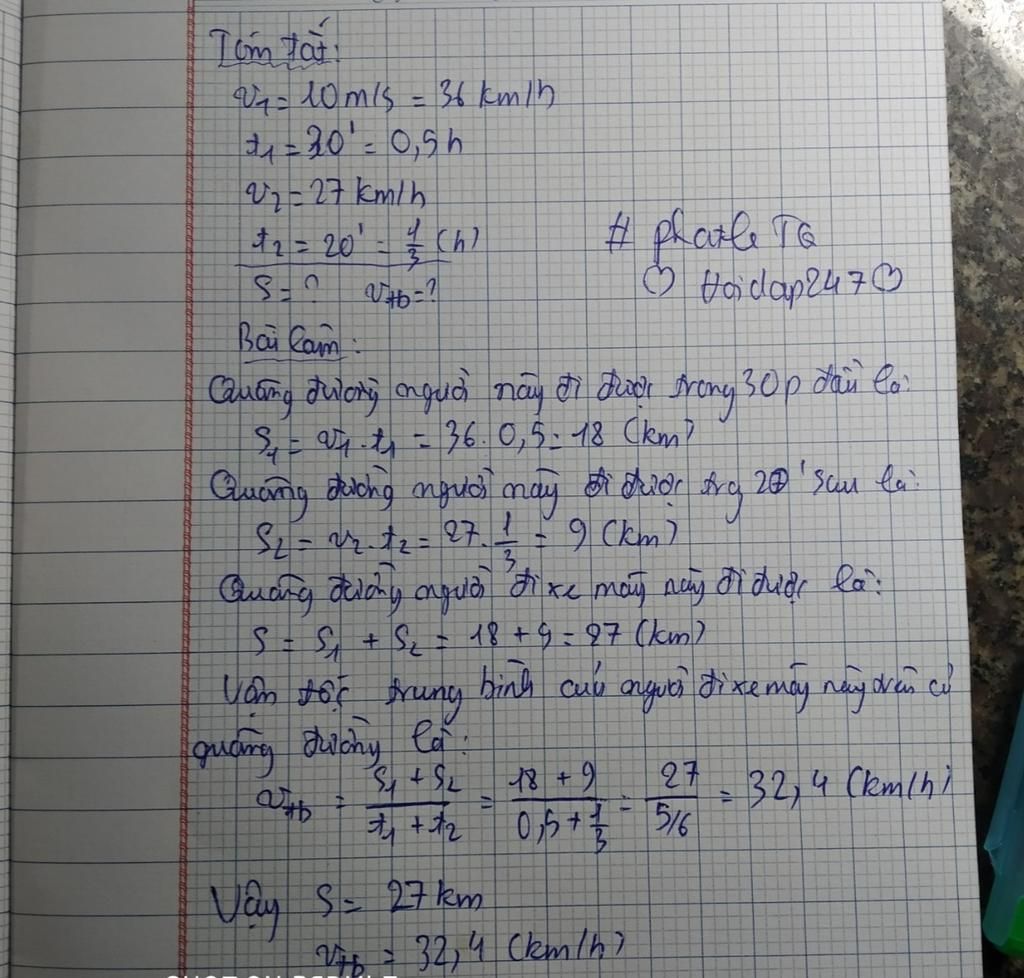 Tóm tắt:
v₁ = 10 m/s = 36 km/h
t₁ = 30' = 0,5h
v₂ = 27 km/h
t₂ = 20' = 1/3 (h)
S = ? vtb = ?
# phatle TG
Hoidap247
Bài làm:
Quãng đường người này đi được trong 30p đầu là:
S₁ = v₁.t₁ = 36.0,5 = 18 (km)
Quãng đường người này đi được trg 20' sau là:
S₂ = v₂.t₂ = 27.1/3 = 9 (km)
Quãng đường người đi xe máy này đi được là:
S = S₁ + S₂ = 18 + 9 = 27 (km)
Vận tốc trung bình của người đi xe máy này trên cả
quãng đường là:
vtb = (S₁ + S₂)/(t₁ + t₂) = (18 + 9)/(0,5 + 1/3) = 27/(5/6) = 32,4 (km/h)
Vậy S = 27 km
vtb = 32,4 (km/h)